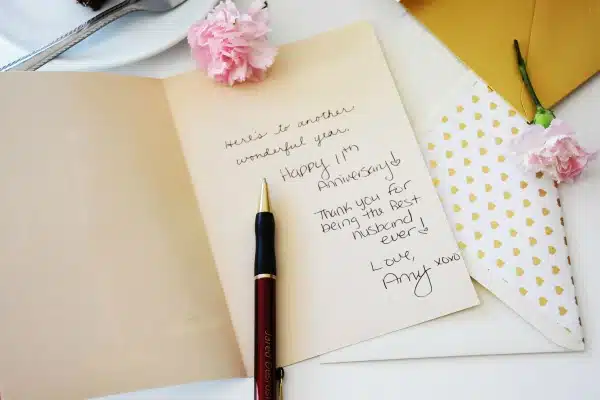 Here's to another
wonderful year.
Happy 11th
Anniversary!
Thank you for
being the Best
husband
ever!
Love,
Amy xoxo
Jared